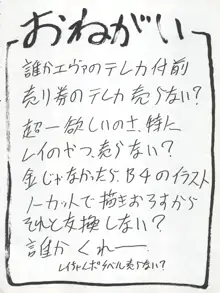 おねがい
誰かエヴァのテレカ付前
売り券のテレカ売らない?
超一欲しいのさ、特に
レイのやつ。売らない?
金じゃなかったらB4のイラスト
ノーカットで描きおろすから
それと交換しない?
誰かくれ——
レイちゃんポ ラベル売らない?